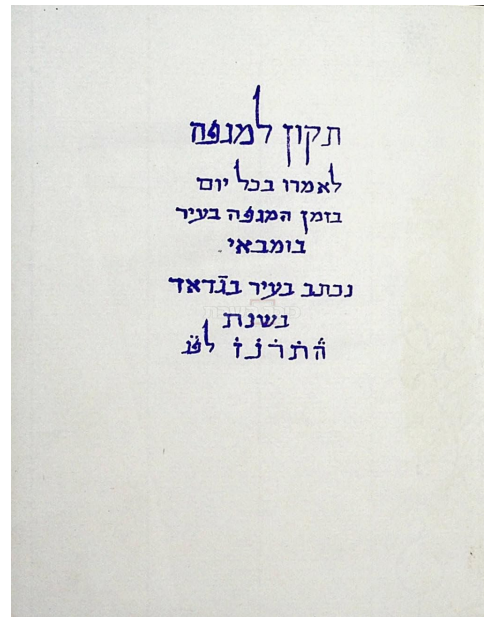 תקון למגפה
לאמרו בכל יום
בזמן המגפה בעיר
בומבאי.
נכתב בעיר בגדאד
בשנת
התרנז לפ״ג